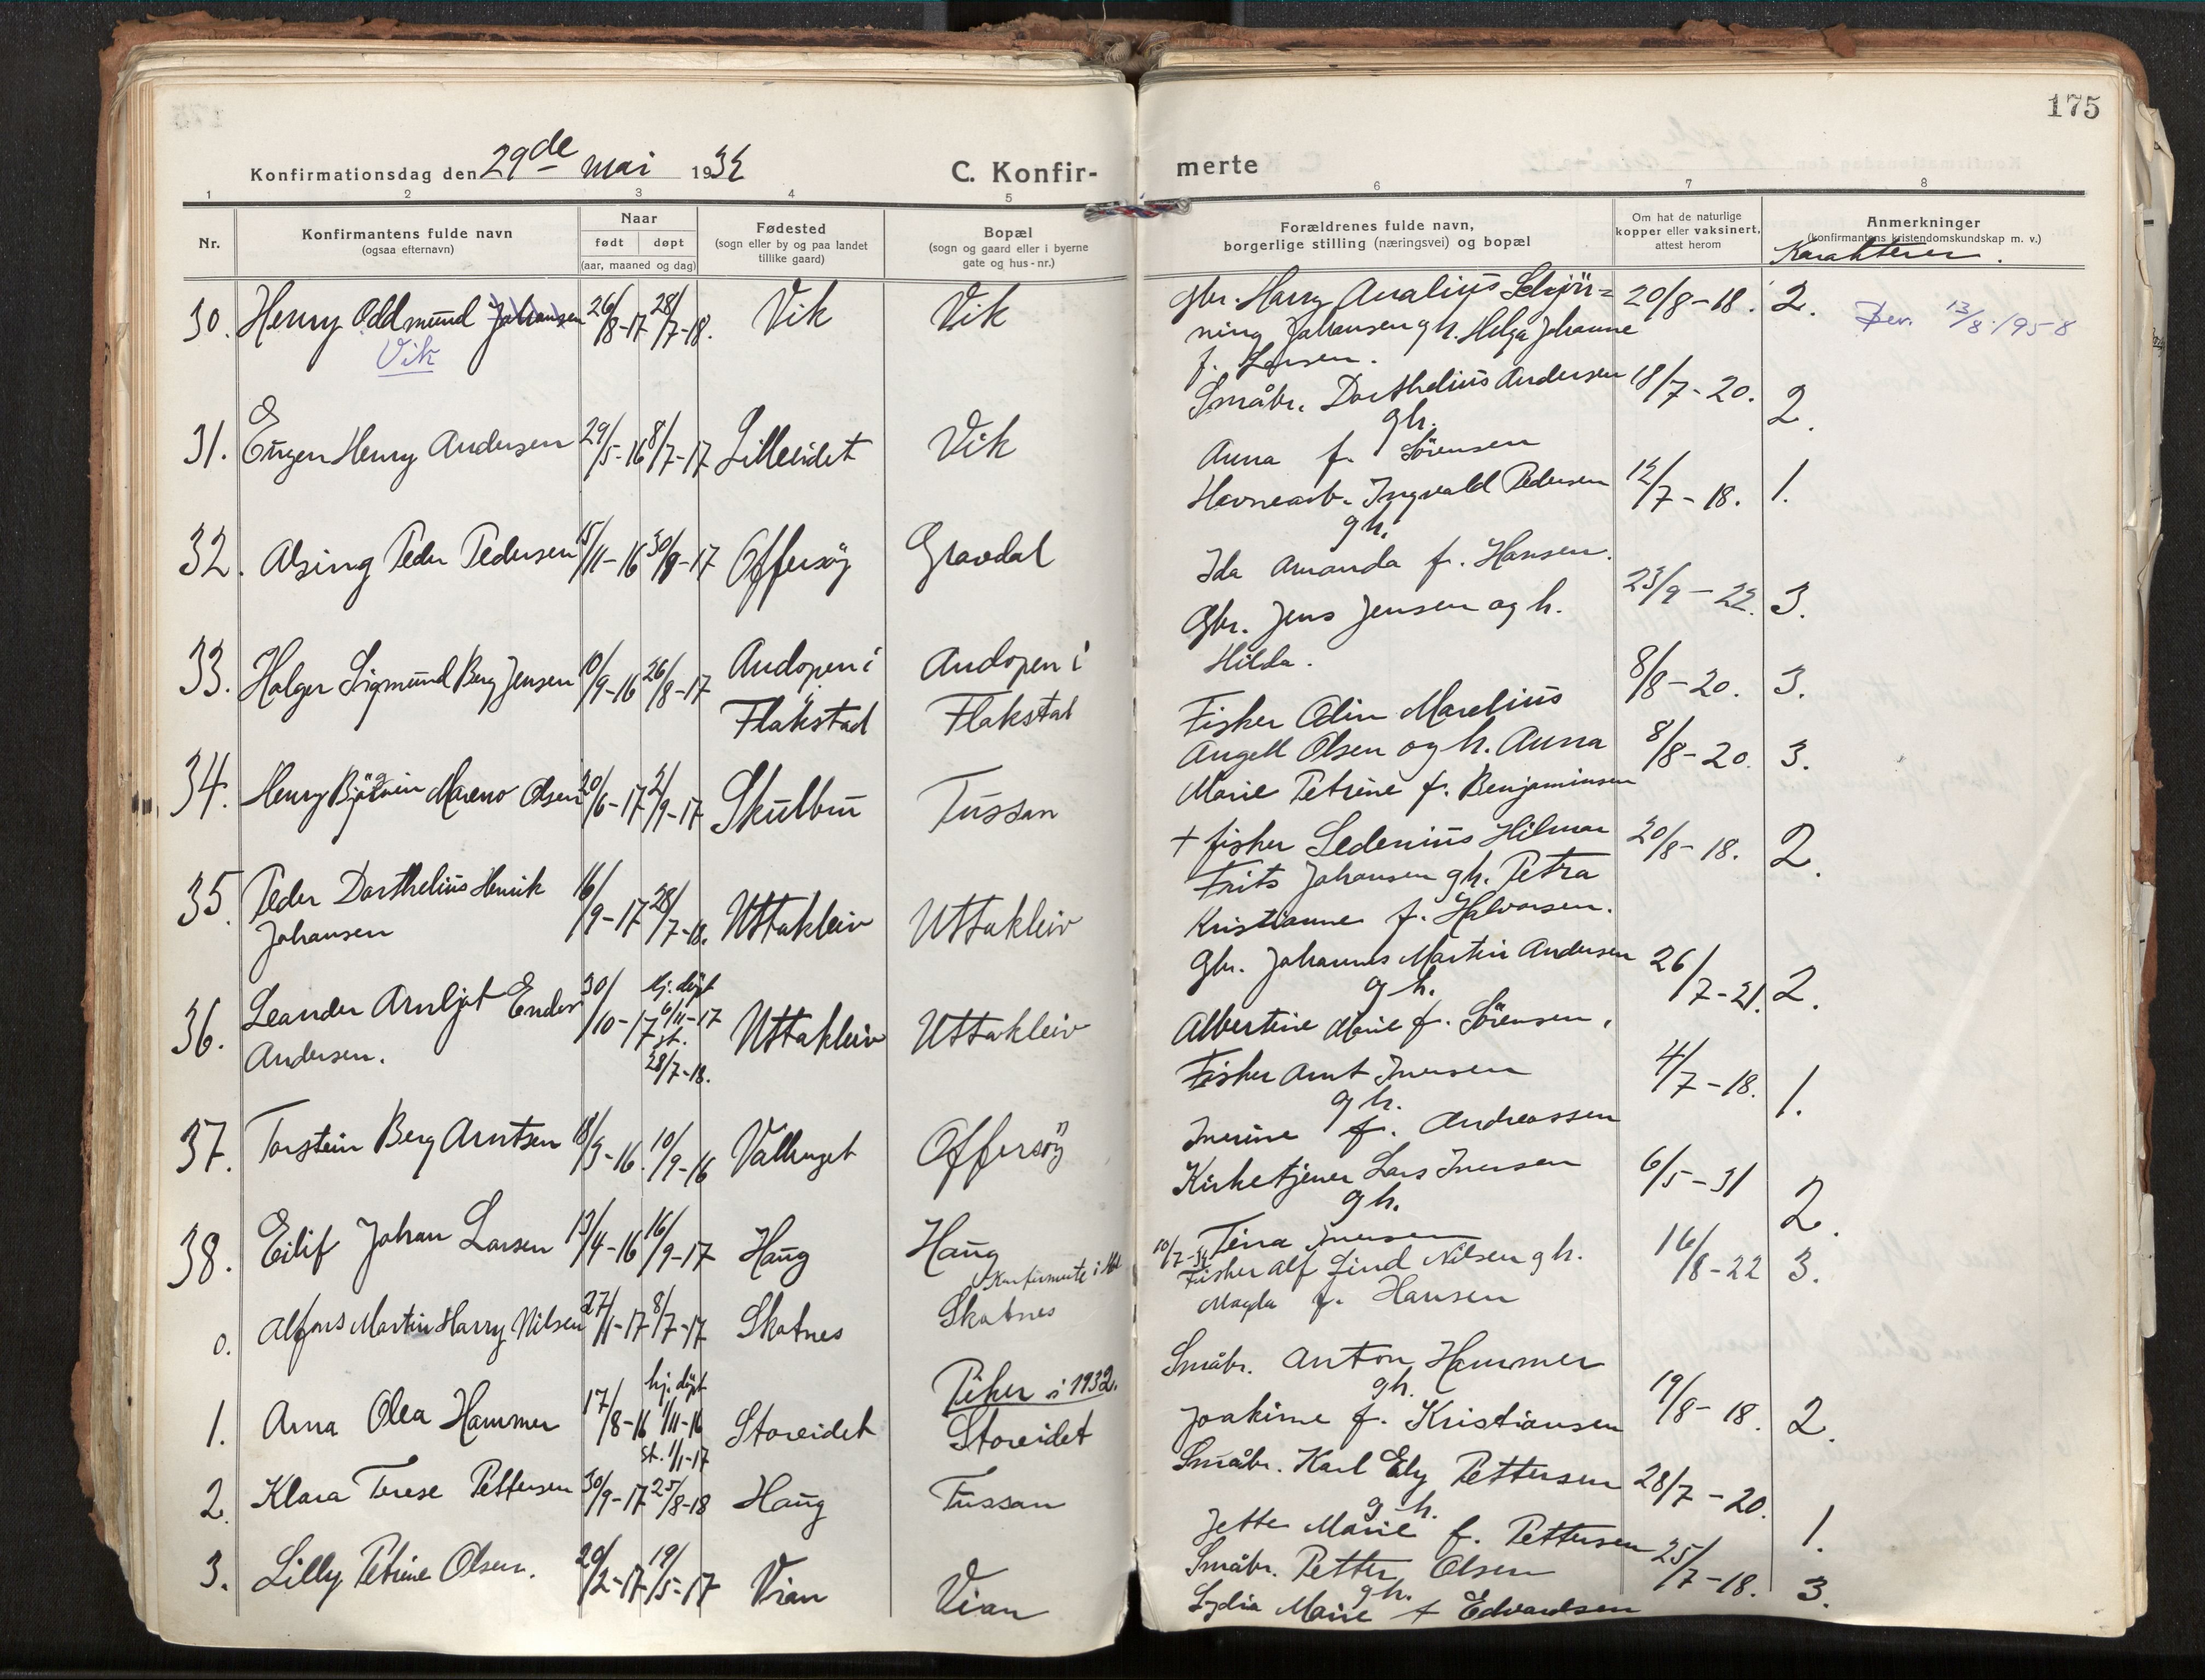 175
Konfirmationsdag den 29de mai 1932
C. Konfir-
merte
1 2 3 4 5 6 7 8
Nr.
Konfirmantens fulde navn
(ogsaa efternavn)
Naar
født døpt
(aar, maaned og dag)
Fødested
(sogn eller by og paa landet
tillike gaard)
Bopæl
(sogn og gaard eller i byerne
gate og hus-nr.)
Forældrenes fulde navn,
borgerlige stilling (næringsvei) og bopæl
Om hat de naturlige
kopper eller vaksinert,
attest herom
Anmerkninger
(konfirmantens kristendomskundskap m. v.)
Karakterer.
30. Henry Oddmund Johansen 26/8-17 28/7-18. Vik Vik
Vik
Gbr. Harry Analius
ning Johansen g h. Helga Johanne
f. Larsen.
20/8-18. 2. 13/8-1958
31. Eugen Henry Andersen 29/5-16 8/7-17 Lilleeidet Vik
Småbr. Dorthelius Andersen
gh.
Anna f. Sörensen
18/7-20. 2.
32. Alsing Peder Pedersen 15/11-16 30/9-17 Offersöy Gravdal
Havnearb. Ingvald Pedersen
gh.
Ida Amanda f. Hansen.
12/7-18. 1.
33. Holger Sigmund Berg Jensen 10/9-16 26/8-17 Andopen i Andopen i
Flakstad Flakstad
Gbr. Jens Jensen og h.
Hilda.
23/9-22. 3.
34. Henry Olsen 20/6-17 2/9-17 Skulbru Tussan
Fisker Odin Marelius
Angell Olsen og h. Anna
Marie Petrine f. Benjaminsen
8/8-20. 3.
8/8-20. 3.
35. Peder Dorthelius Henrik 16/9-17 28/7-18. Uttakleiv Uttakleiv
Johansen
+ fisker Sedenius Hilmar
Frits Johansen gh. Petra
Kristianne f. Halvorsen.
20/8-18. 2.
36. Leander Arnljot Endor 30/10-17 hj. döpt 6/11-17 st. 28/7-18. Uttakleiv Uttakleiv
Andersen.
Gbr. Johannes Martin Andersen
g h.
Albertine Marie f. Sörensen.
26/7-21. 2.
37. Torstein Berg Arntsen 18/3-16. 10/9-16 Valhuget Offersöy
Fisker Arnt Iversen
gh.
Inerine f. Andreassen
4/7-18. 1.
38. Eilif Johan Larsen 13/4-16 16/9-17 Haug Haug
Kirketjener Lars Iversen
gh.
Tina Iversen
6/5-31 2.
0. Alfons Martin Harry Nilsen 27/1-17 8/7-17 Skotnes Skotnes
Fisker Alf Lind Nilsen g h.
Magda f. Hansen
16/8-22 3.
Piker i 1932.
1. Anna Olea Hammer 17/8-16 hj. döpt 1/11-16 st. 1/1-17 Storeidet Storeidet
Småbr. Anton Hammer
gh.
Joakime f. Kristiansen
19/8-18. 2.
2. Klara Terese Pettersen 30/9-17 25/8-18 Haug Tussan
Småbr. Karl Ely Pettersen
g h.
Jette Marie f. Pettersen
28/7-20. 1.
3. Lilly Petrine Olsen. 20/2-17 19/5-17 Vian Vian
Småbr. Petter Olsen
gh.
Lydia Marie f Edvardsen
25/7-18. 3.